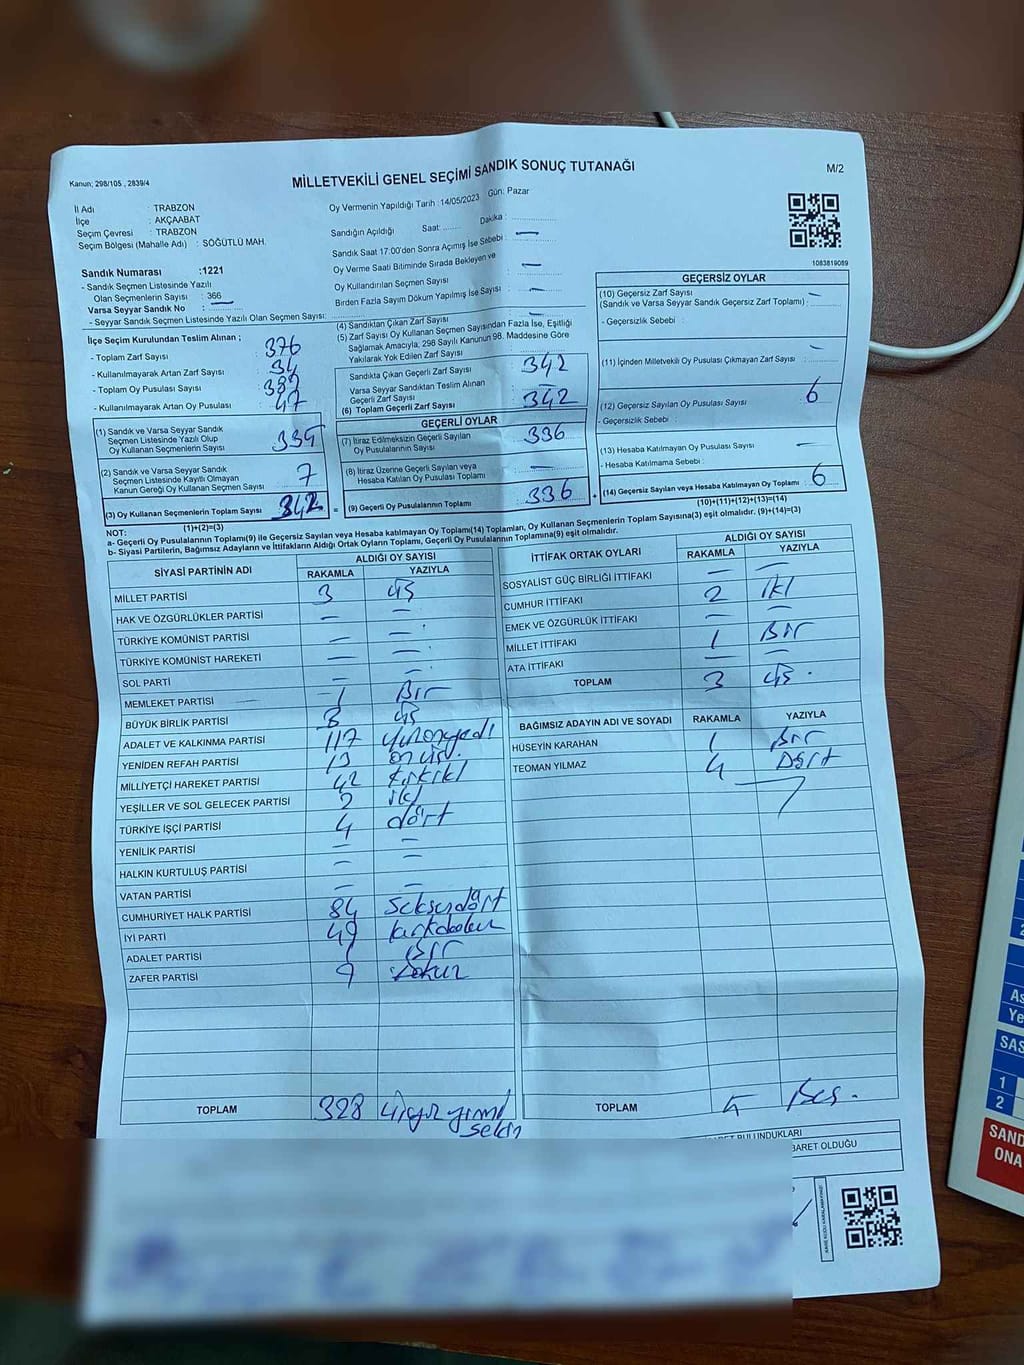 Kanun; 298/105 , 2839/4
MİLLETVEKİLİ GENEL SEÇİMİ SANDIK SONUÇ TUTANAĞI
M/2
İl Adı : TRABZON
İlçe : AKÇAABAT
Seçim Çevresi : TRABZON
Seçim Bölgesi (Mahalle Adı) : SÖĞÜTLÜ MAH.
Oy Vermenin Yapıldığı Tarih : 14/05/2023 Gün: Pazar
Sandığın Açıldığı Saat: ........ Dakika : ..............
Sandık Saat 17:00'den Sonra Açımış İse Sebebi : —
Oy Verme Saati Bitiminde Sırada Bekleyen ve
Oy Kullandırılan Seçmen Sayısı : —
Birden Fazla Sayım Dökum Yapılmış İse Sayısı : —
1083819089
Sandık Numarası :1221
- Sandık Seçmen Listesinde Yazılı
Olan Seçmenlerin Sayısı : 366
Varsa Seyyar Sandık No : —
- Seyyar Sandık Seçmen Listesinde Yazılı Olan Seçmen Sayısı:
İlçe Seçim Kurulundan Teslim Alınan ;
- Toplam Zarf Sayısı : 376
- Kullanılmayarak Artan Zarf Sayısı : 34
- Toplam Oy Pusulası Sayısı :
- Kullanılmayarak Artan Oy Pusulası : 47
(1) Sandık ve Varsa Seyyar Sandık
Seçmen Listesinde Yazılı Olup
Oy Kullanan Seçmenlerin Sayısı : 335
(2) Sandık ve Varsa Seyyar Sandık
Seçmen Listesinde Kayıtlı Olmayan
Kanun Gereği Oy Kullanan Seçmen Sayısı : 7
(3) Oy Kullanan Seçmenlerin Toplam Sayısı : 342
(1)+(2)=(3)
(4) Sandıktan Çıkan Zarf Sayısı
(5) Zarf Sayısı Oy Kullanan Seçmen Sayısından Fazla İse, Eşitliği
Sağlamak Amacıyla; 298 Sayılı Kanunun 98. Maddesine Göre
Yakılarak Yok Edilen Zarf Sayısı
Sandıkta Çıkan Geçerli Zarf Sayısı : 342
Varsa Seyyar Sandıktan Teslim Alınan
Geçerli Zarf Sayısı : —
(6) Toplam Geçerli Zarf Sayısı : 342
GEÇERLİ OYLAR
(7) İtiraz Edilmeksizin Geçerli Sayılan
Oy Pusulalarının Sayısı : 336
(8) İtiraz Üzerine Geçerli Sayılan veya
Hesaba Katılan Oy Pusulası Toplamı : —
= (9) Geçerli Oy Pusulalarının Toplamı : 336 +
GEÇERSİZ OYLAR
(10) Geçersiz Zarf Sayısı
(Sandık ve Varsa Seyyar Sandık Geçersiz Zarf Toplamı) : —
- Geçersizlik Sebebi :
(11) İçinden Milletvekili Oy Pusulası Çıkmayan Zarf Sayısı : —
(12) Geçersiz Sayılan Oy Pusulası Sayısı : 6
- Geçersizlik Sebebi :
(13) Hesaba Katılmayan Oy Pusulası Sayısı : —
- Hesaba Katılmama Sebebi :
(14) Geçersiz Sayılan veya Hesaba Katılmayan Oy Toplamı : 6
(10)+(11)+(12)+(13)=(14)
NOT:
a- Geçerli Oy Pusulalarının Toplamı(9) ile Geçersiz Sayılan veya Hesaba katılmayan Oy Toplamı(14) Toplamları, Oy Kullanan Seçmenlerin Toplam Sayısına(3) eşit olmalıdır. (9)+(14)=(3)
b- Siyasi Partilerin, Bağımsız Adayların ve İttifakların Aldığı Ortak Oyların Toplamı, Geçerli Oy Pusulalarının Toplamına(9) eşit olmalıdır.
SİYASİ PARTİNİN ADI ALDIĞI OY SAYISI
RAKAMLA YAZIYLA
MİLLET PARTİSİ 3 üç
HAK VE ÖZGÜRLÜKLER PARTİSİ — —
TÜRKİYE KOMÜNİST PARTİSİ — —
TÜRKİYE KOMÜNİST HAREKETİ — —
SOL PARTİ — —
MEMLEKET PARTİSİ 1 Bir
BÜYÜK BİRLİK PARTİSİ 3 üç
ADALET VE KALKINMA PARTİSİ 117 yüzonyedi
YENİDEN REFAH PARTİSİ 13 onüç.
MİLLİYETÇİ HAREKET PARTİSİ 42 kırkiki
YEŞİLLER VE SOL GELECEK PARTİSİ 2 iki
TÜRKİYE İŞÇİ PARTİSİ 4 dört
YENİLİK PARTİSİ — —
HALKIN KURTULUŞ PARTİSİ — —
VATAN PARTİSİ — —
CUMHURİYET HALK PARTİSİ 84 Seksendört
İYİ PARTİ 49 kırkdokuz
ADALET PARTİSİ 1 Bir
ZAFER PARTİSİ 9 Dokuz
TOPLAM 328 üçyüz yirmi
sekiz
İTTİFAK ORTAK OYLARI ALDIĞI OY SAYISI
RAKAMLA YAZIYLA
SOSYALİST GÜÇ BİRLİĞİ İTTİFAKI — —
CUMHUR İTTİFAKI 2 iki
EMEK VE ÖZGÜRLÜK İTTİFAKI — —
MİLLET İTTİFAKI 1 Bir
ATA İTTİFAKI — —
TOPLAM 3 üç.
BAĞIMSIZ ADAYIN ADI VE SOYADI RAKAMLA YAZIYLA
HÜSEYİN KARAHAN 1 Bir
TEOMAN YILMAZ 4 Dört
TOPLAM 5 Beş.
BULUNDUKLARI
BARET OLDUĞU
As
Ye
SAS
1
2
SAND
ONA